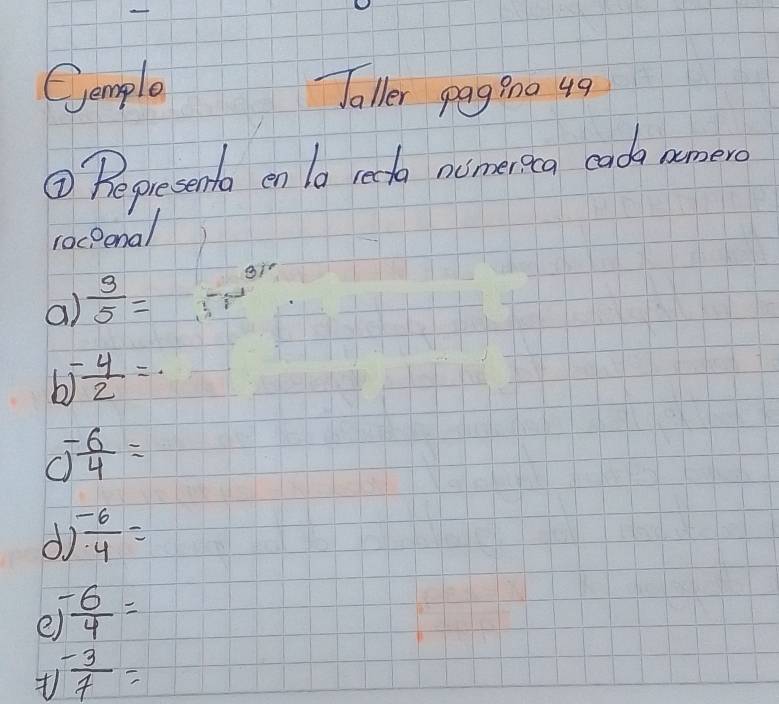 Ejemplo Taller pagina 49
① Representa en la recta númerica cada numero
racional
a) 3/5 =
b) -4/2 =
c) -6/4 =
d) -6/4 =
e) -6/4 =
f) -3/7 =